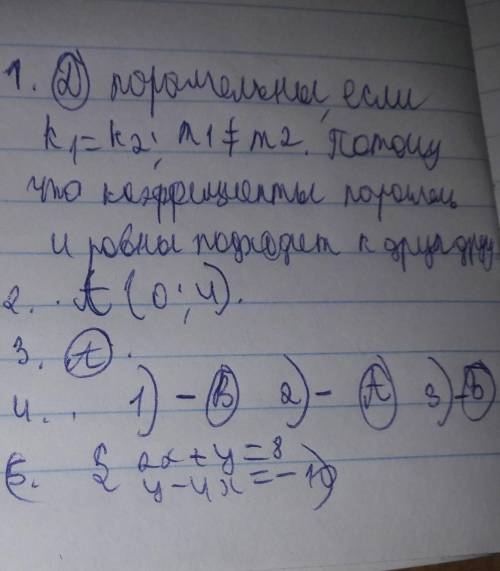 1. Д паралельны, если
k1=k2; m1≠m2. Потому
что коэффициенты паралель
и равны подходит к друг другу
2. А (0; 4).
3. А.
4. 1) - В 2) - А 3) - Б
5. { 2x+y=8
y-4x=-10